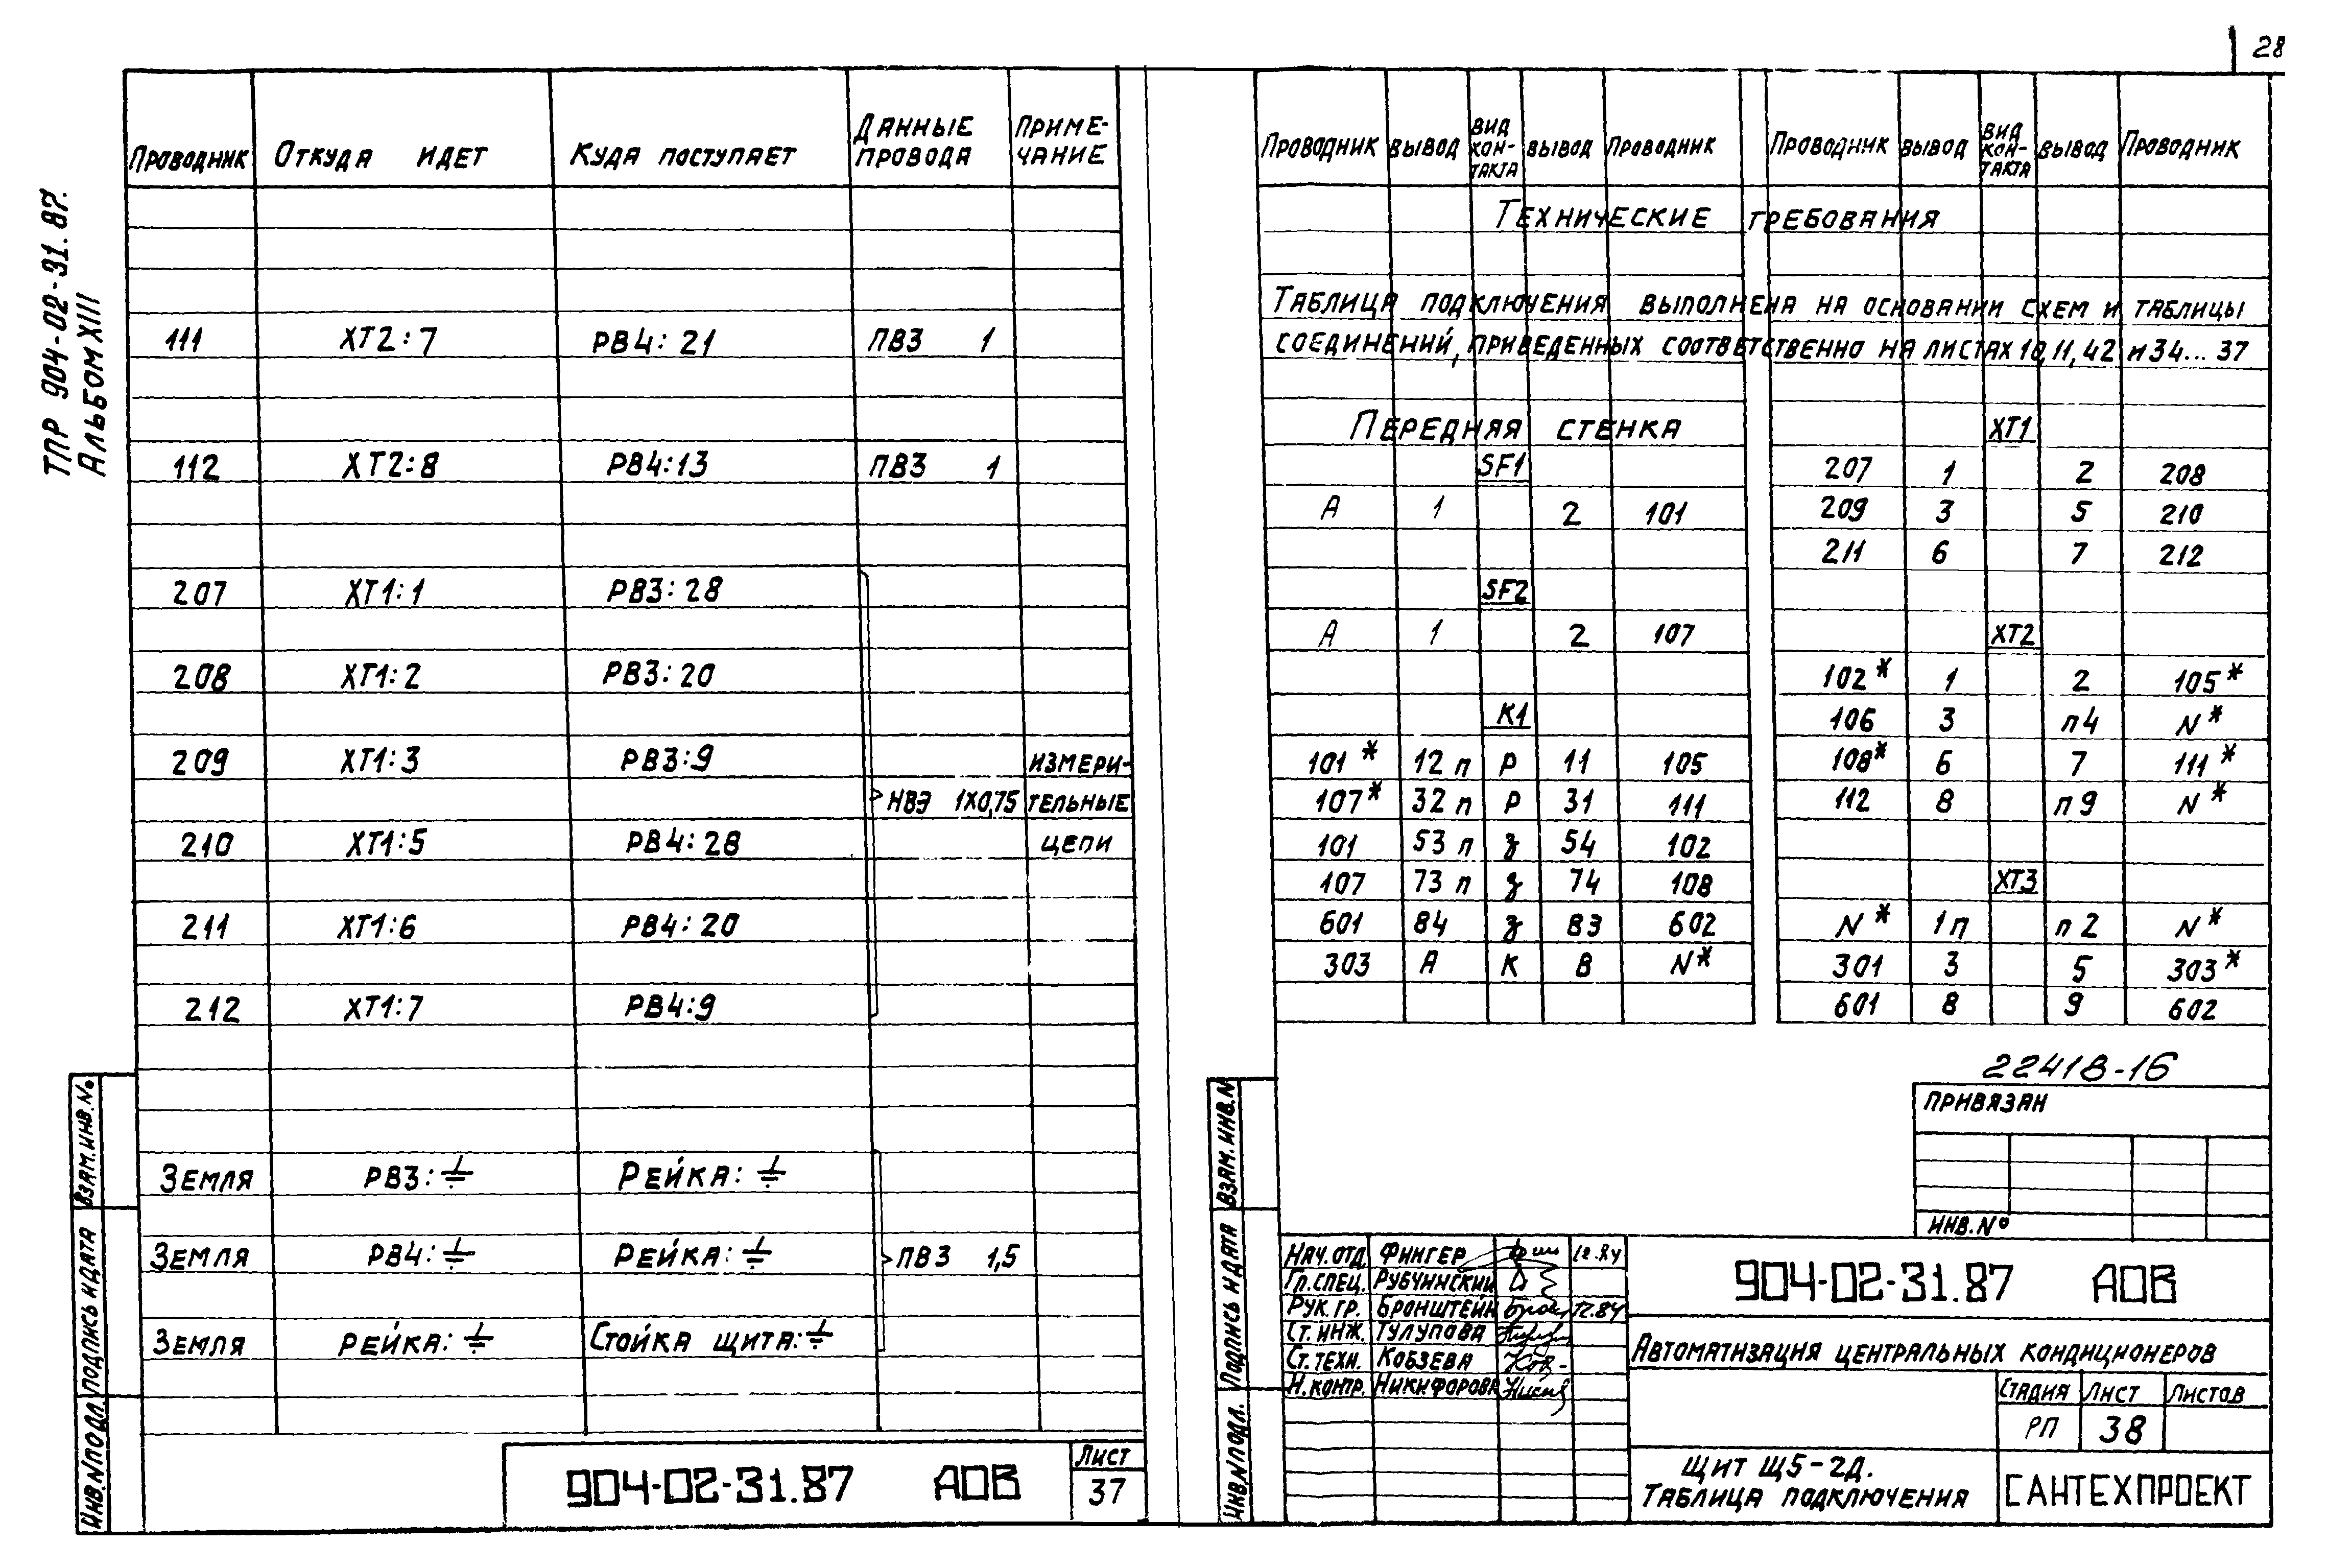 28
ТПР 904-02-31.87.
Альбом XIII
Проводник Откуда идет Куда поступает Данные провода Приме-чание
111 ХТ2:7 РВ4:21 ПВ3 1
112 ХТ2:8 РВ4:13 ПВ3 1
207 ХТ1:1 РВ3:28
208 ХТ1:2 РВ3:20
209 ХТ1:3 РВ3:9 измери-
НВЭ 1х0,75 тельные
210 ХТ1:5 РВ4:28 цепи
211 ХТ1:6 РВ4:20
212 ХТ1:7 РВ4:9
Земля РВ3:⏚ Рейка:⏚
Земля РВ4:⏚ Рейка:⏚ ПВ3 1,5
Земля Рейка:⏚ Стойка щита:⏚
Взам.инв.№
Подпись и дата
Инв.№подл.
904-02-31.87 АОВ
Лист
37
Проводник вывод вид кон-такта вывод Проводник Проводник вывод вид кон-такта вывод Проводник
Технические требования
Таблица подключения выполнена на основании схем и таблицы
соединений, приведенных соответственно на листах 10,11,42 и 34...37
Передняя стенка ХТ1
SF1 207 1 2 208
А 1 2 101 209 3 5 210
211 6 7 212
SF2
А 1 2 107 ХТ2
102* 1 2 105*
К1 106 3 п4 N*
101* 12 п Р 11 105 108* 6 7 111*
107* 32 п Р 31 111 112 8 п9 N*
101 53 п з 54 102
107 73 п з 74 108 ХТ3
601 84 з 83 602 N* 1п п2 N*
303 А К В N* 301 3 5 303*
601 8 9 602
22418-16
Привязан
Инв.№
Взам.инв.N
Подпись и дата
Инв.№подл.
Нач.отд. Фингер 12.84
Гл.спец. Рубчинский
Рук.гр. Бронштейн 12.84
Ст.инж. Тулупова
Ст.техн. Кобзева
Н.контр. Никифорова
904-02-31.87 АОВ
Автоматизация центральных кондиционеров
Стадия Лист Листов
РП 38
Щит Щ5-2Д.
Таблица подключения
САНТЕХПРОЕКТ